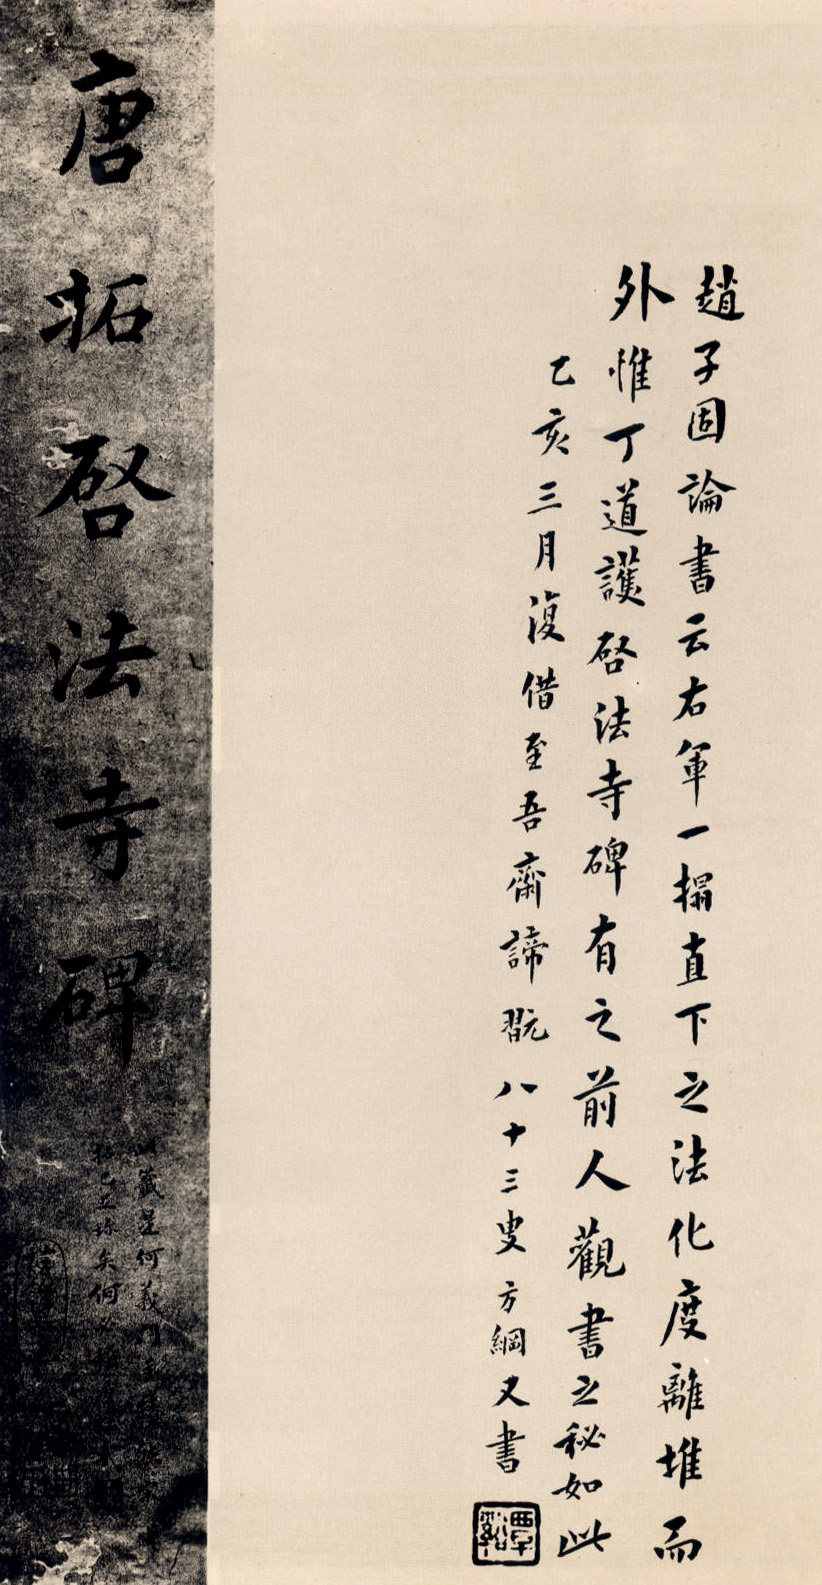 趙子固論書云右軍一搨直下之法化度離堆而
外惟丁道護啓法寺碑有之前人觀書之秘如此
乙亥三月復借至吾齋諦翫八十三叟方綱又書
覃谿
唐拓啓法寺碑
籤是何義門
矣何必